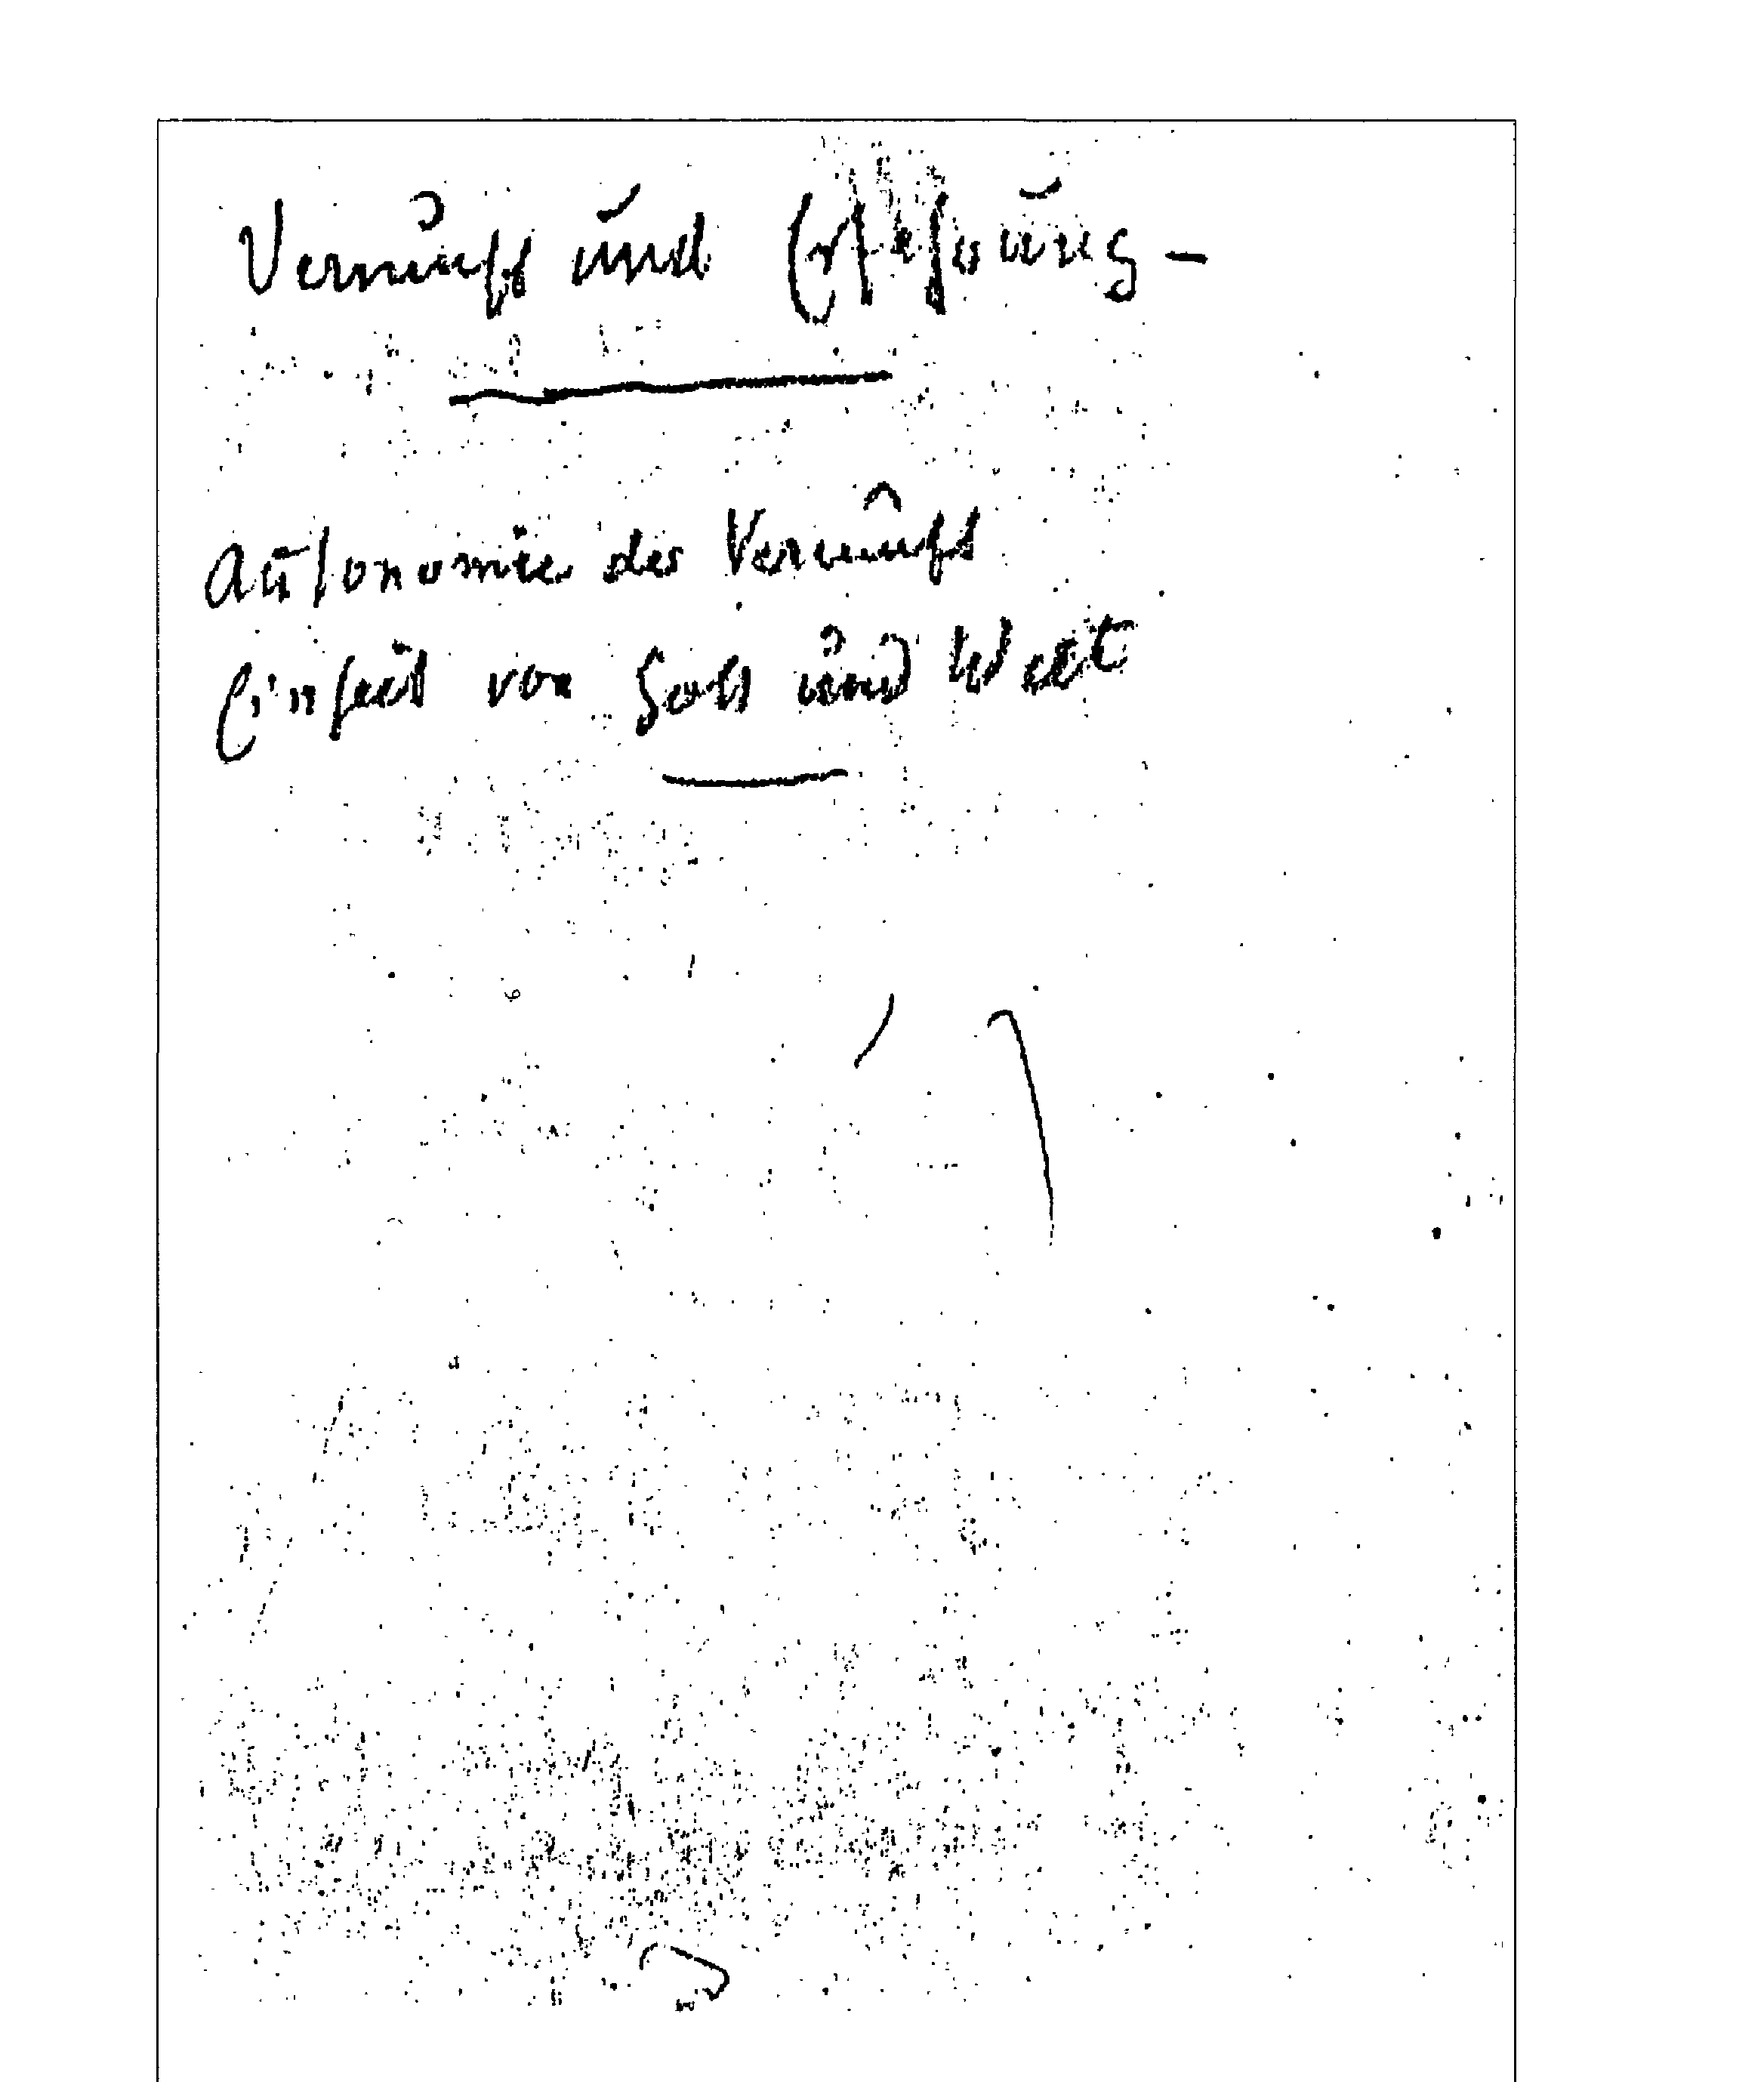 Vernunft und Erfahrung –
Autonomie der Vernunft
Einheit von Gott und Welt